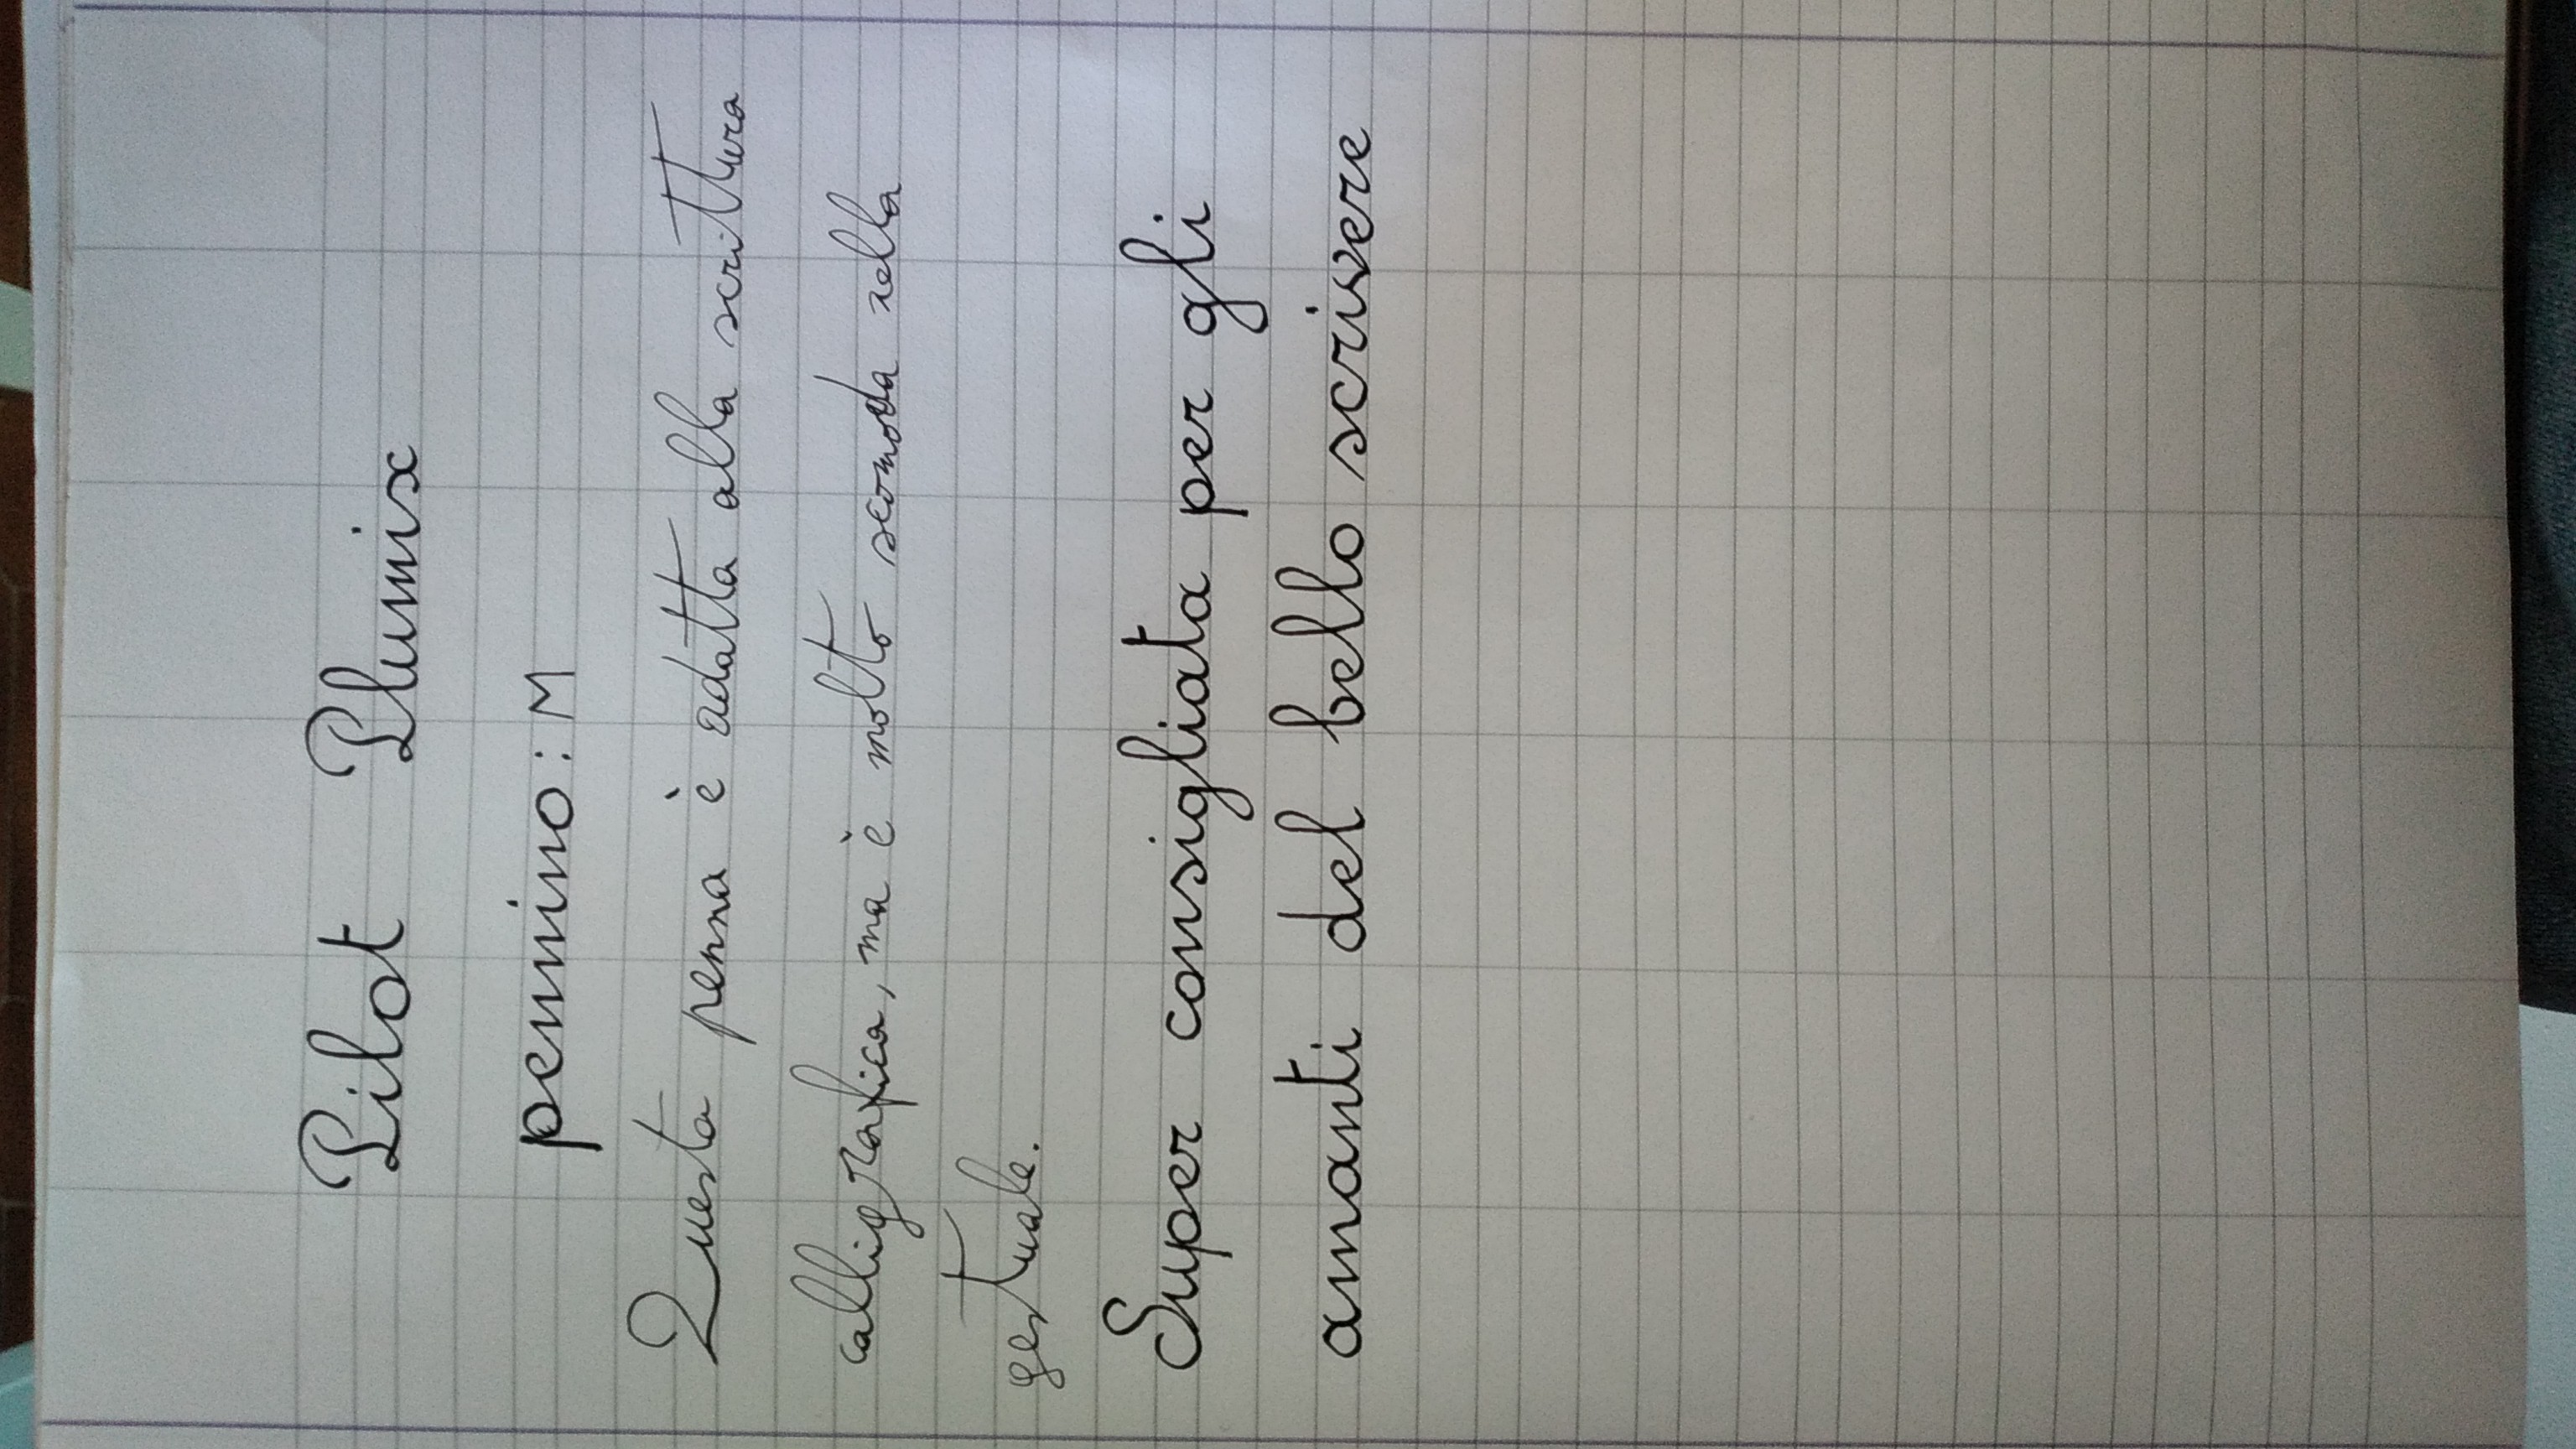 Pilot Plumix
pennino: M
Questa penna è adatta alla scrittura
calligrafica, ma è molto scomoda nella
gestuale.
Super consigliata per gli
amanti del bello scrivere